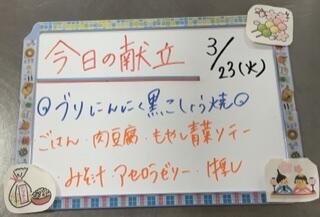 今日の献立 3/23(火)
ブリにんにく黒こしょう焼
ごはん・肉豆腐・もやし青菜ソテー
・みそ汁・アセロラゼリー・